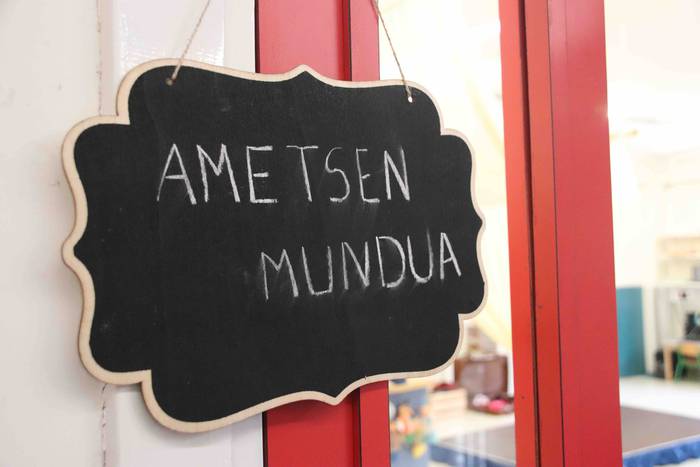 AMETSEN
MUNDUA